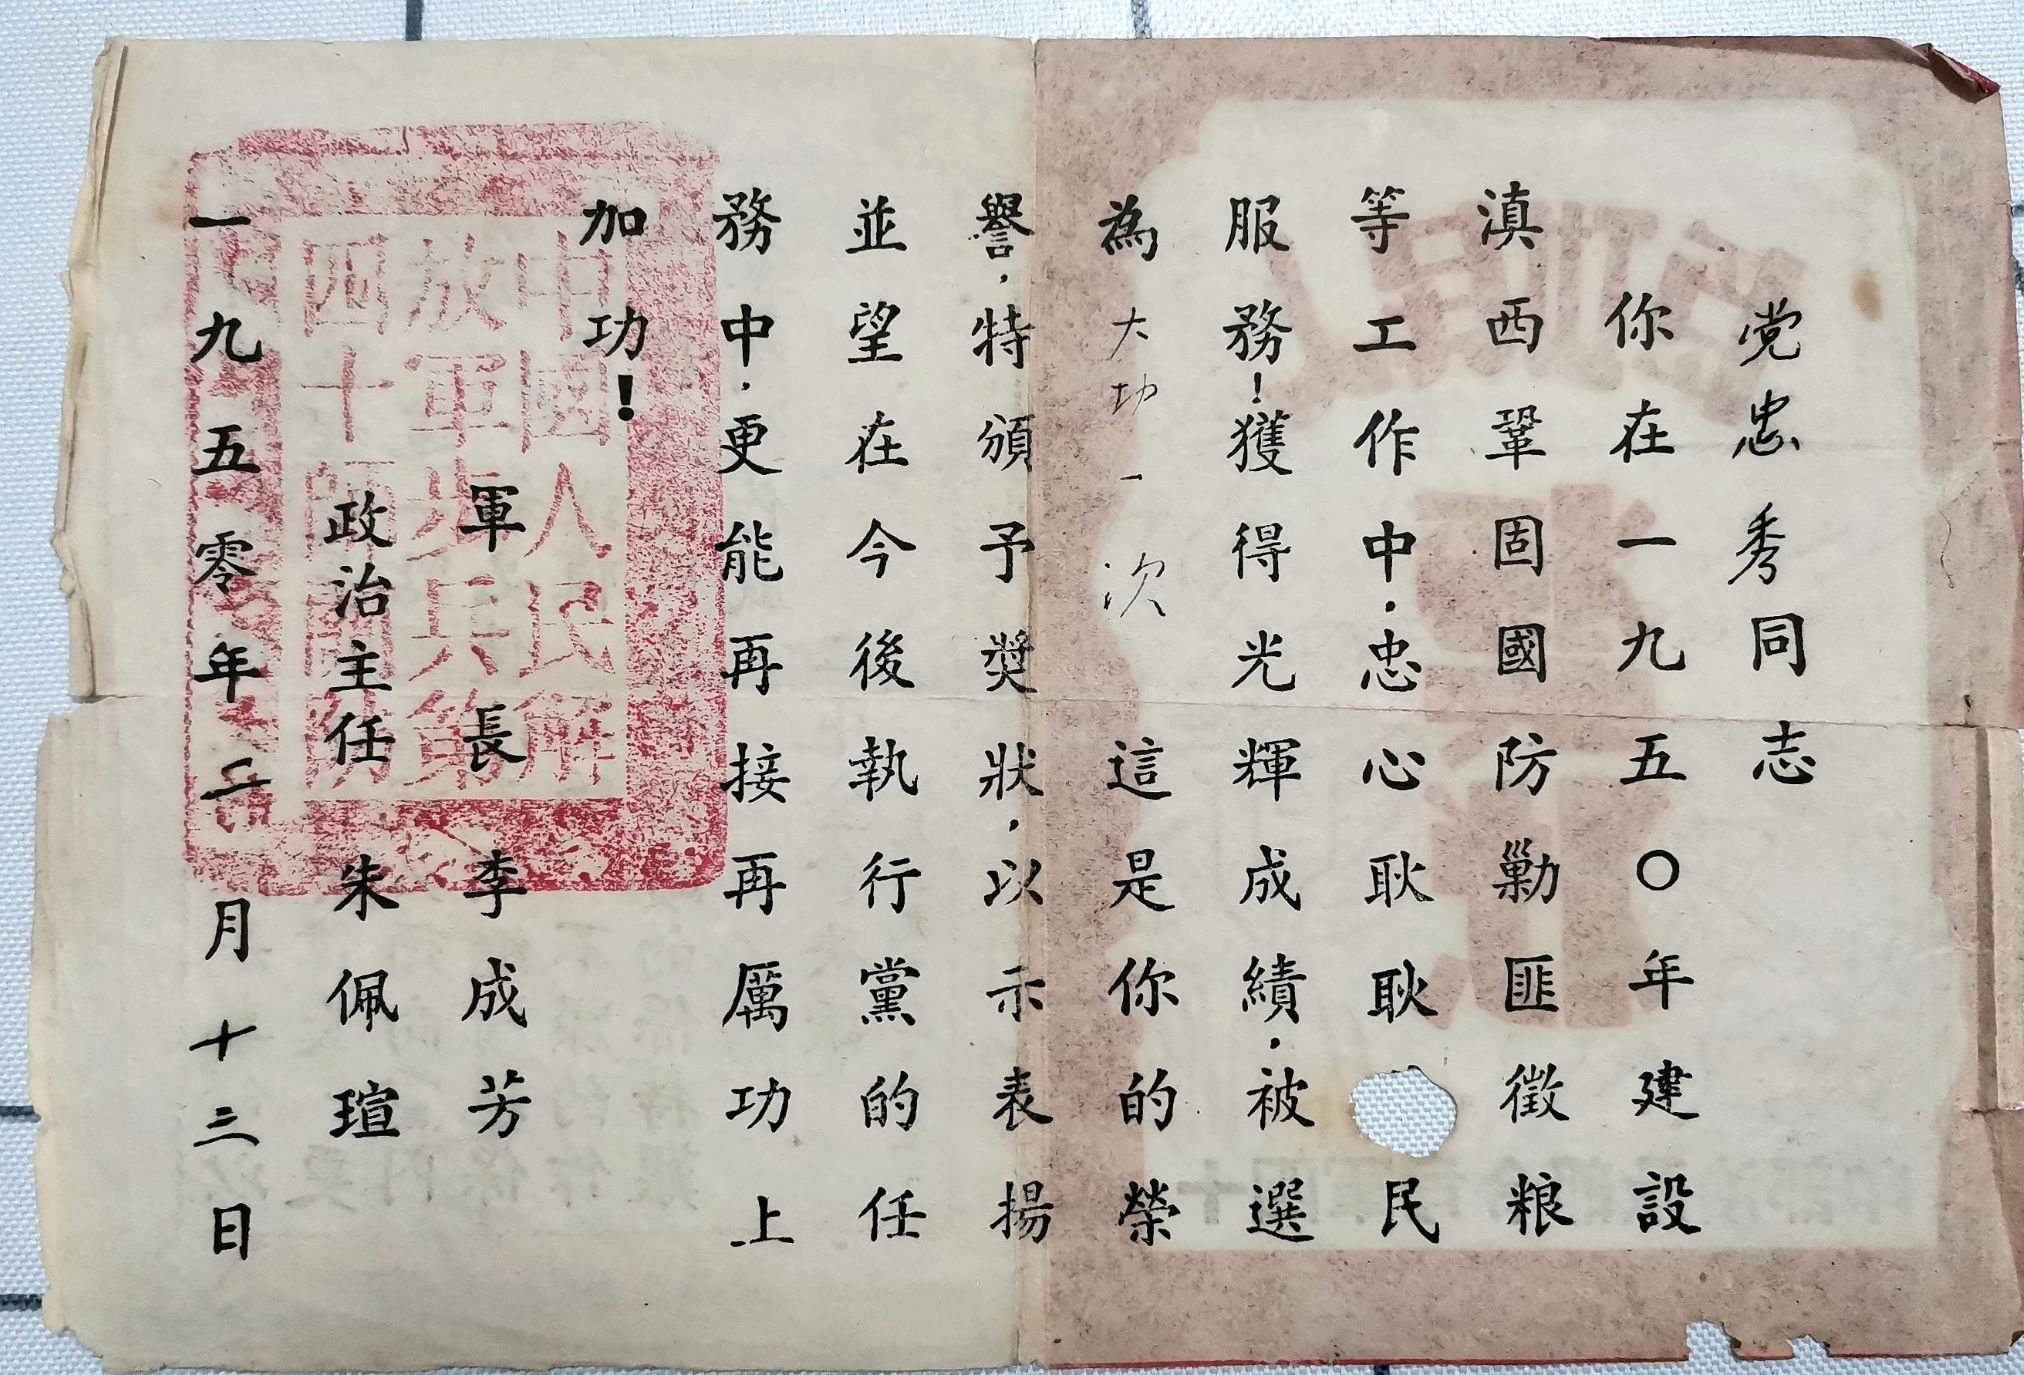 党忠秀同志
你在一九五〇年建設
滇西鞏固國防剿匪徵粮
等工作中，忠心耿耿 民
服務！獲得光輝成績，被選
為大功一次 這是你的榮
譽，特頒予獎狀，以示表揚
並望在今後執行黨的任
務中，更能再接再厲功上
加功！
軍長李成芳
政治主任朱佩瑄
一九五零年 月十三日
中國人民解
放軍步兵第
四十